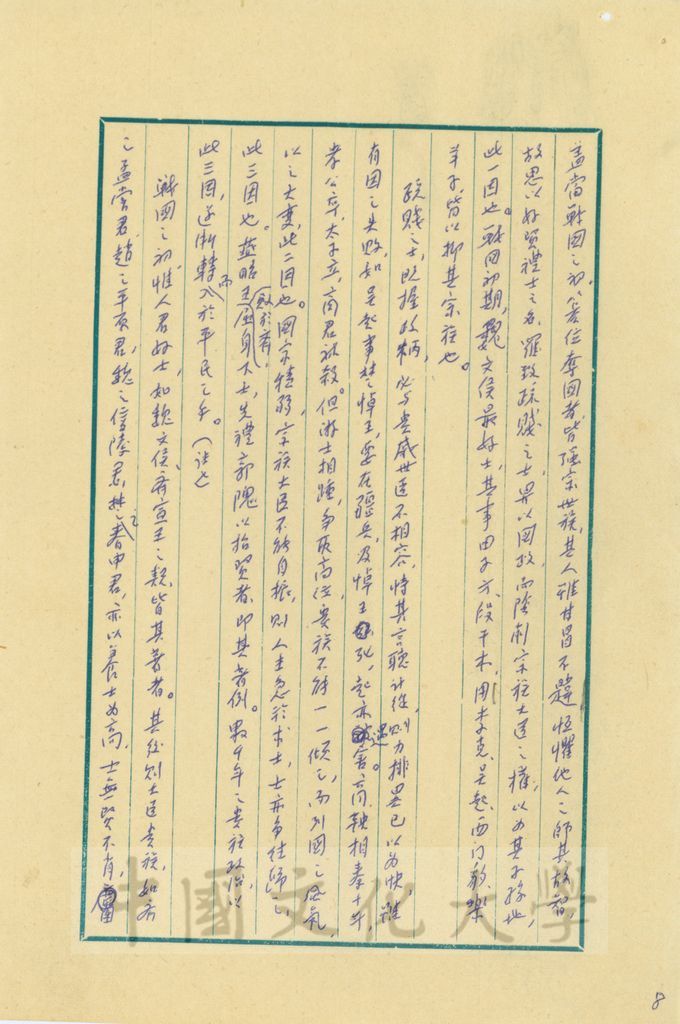 蓋當戰國之初，篡位奪國者，皆強宗世族，其人雖甘冒不韙，恆懼他人之師其故智，
故思以好賢禮士之名，羅致疏賤之士，畀以國政，而陰削宗族大臣之權，以為其子孫地，
此一因也。戰國初期，魏文侯最好士，其事田子方、段干木，用李克、吳起、西門豹、樂
羊子，皆以抑其宗族也。
疏賤之士，既握政柄，必與貴戚世臣不相容，恃其言聽計從，則力排異己以為快，雖
有因之失敗，如吳起事楚悼王，要在彊兵，及悼王死，起亦遇害。商鞅相秦十年，
孝公卒，太子立，商君被殺。但游士相踵，爭取高位，貴族不能一一傾之，而列國之風氣，
以之大變，此二因也。國家積弱，宗族大臣不能自振，則人主急於求士，士亦爭往歸之，
此三因也。燕昭王敗於齊，屈身下士，先禮郭隗以招賢者，即其著例。累年之貴族政治以
此三因，遂漸轉而入於平民之手。（註七）
戰國之初，惟人君好士，如魏文侯、齊宣王之類，皆其著者。其後則大臣貴族，如齊
之孟嘗君，趙之平原君，魏之信陵君，楚之春申君，亦以養士為高，士無賢不肖，
中國文化大學
8